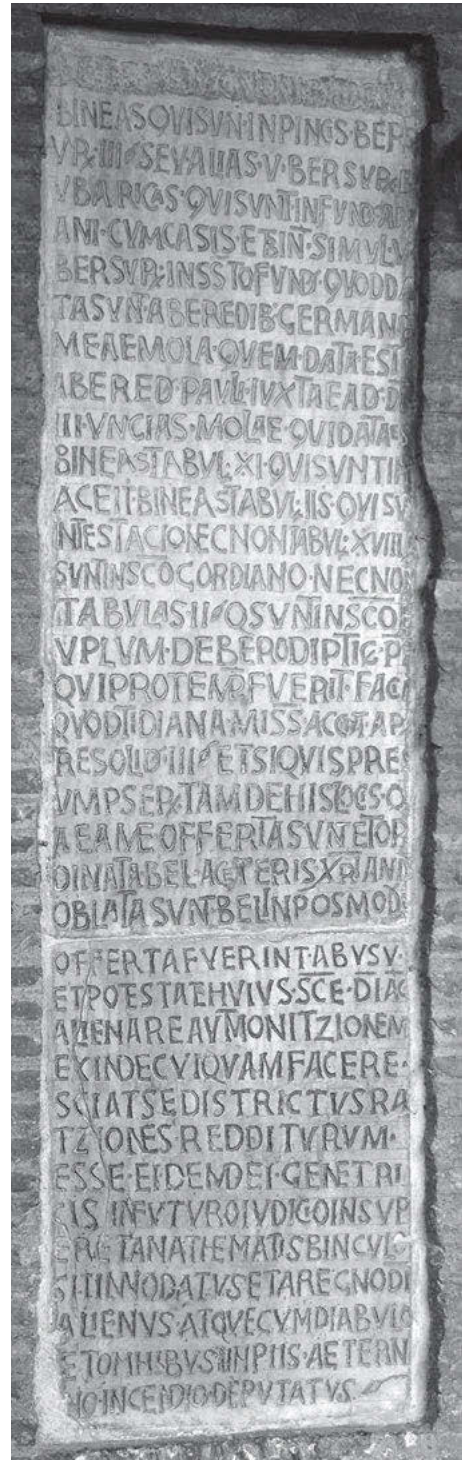 BINEAS·QVISVN·INPINCS·BER
VPX·III SEV ALIAS·V·BERSVPX
VBARICAS·QVISVNTINFVND·
ANI·CVMCASIS·ETBIN·SIMVL·V
BERSVPX·INSSTOFVND·QVODDA
TASVNT·ABEREDIB·GERMAN
MEAEMOLA·QVEM·DATAEST
ABERED·PAVL·IVXTAEAD·D
III·VNCIAS·MOLAE·QVIDATA
BINEASTABVL·XI·QVISVNTIN
ACEII·BINEASTABVL·IIS·QVISV
NTESTACIONECNONTABVL·XVIII
SVNTINSCOGORDIANO·NECNON
TABVLAS·II QSVNTINSCO
VPLVM·DEBERODIPTIC·P
QVIPROTEMP·FVERIT·FACI
QVODTIDIANA·MISSAC
RESOLID·III ETSIQVISPRES
VMPSERX·TAMDEHISLOCS·Q
AEAMEOFFERTASVNTETOR
DINATABEL·ACETERISXPIANI
OBLATASVNT·BELINPOSMOD
OFFERTAFVERINT·ABVSV·
ETPOTESTATEHVIVS·SCE·DIAC
ALIENAREAVTMONITZIONEM
EXINDECVIQVAMFACERE·
SCIATSEDISTRICTVSRA
TZIONES·REDDITVRVM·
ESSE·EIDEMDEI·GENETRI
CIS INFVTVROIVDICOINSVP
ERETANATHEMATISBINCVLO
SITINNODATVSETAREGNODI
ALIENVS·ATQVECVMDIABVLO
ETOMNIBVSINPIIS·AETERN
NO·INCENDIO·DEPVTATVS